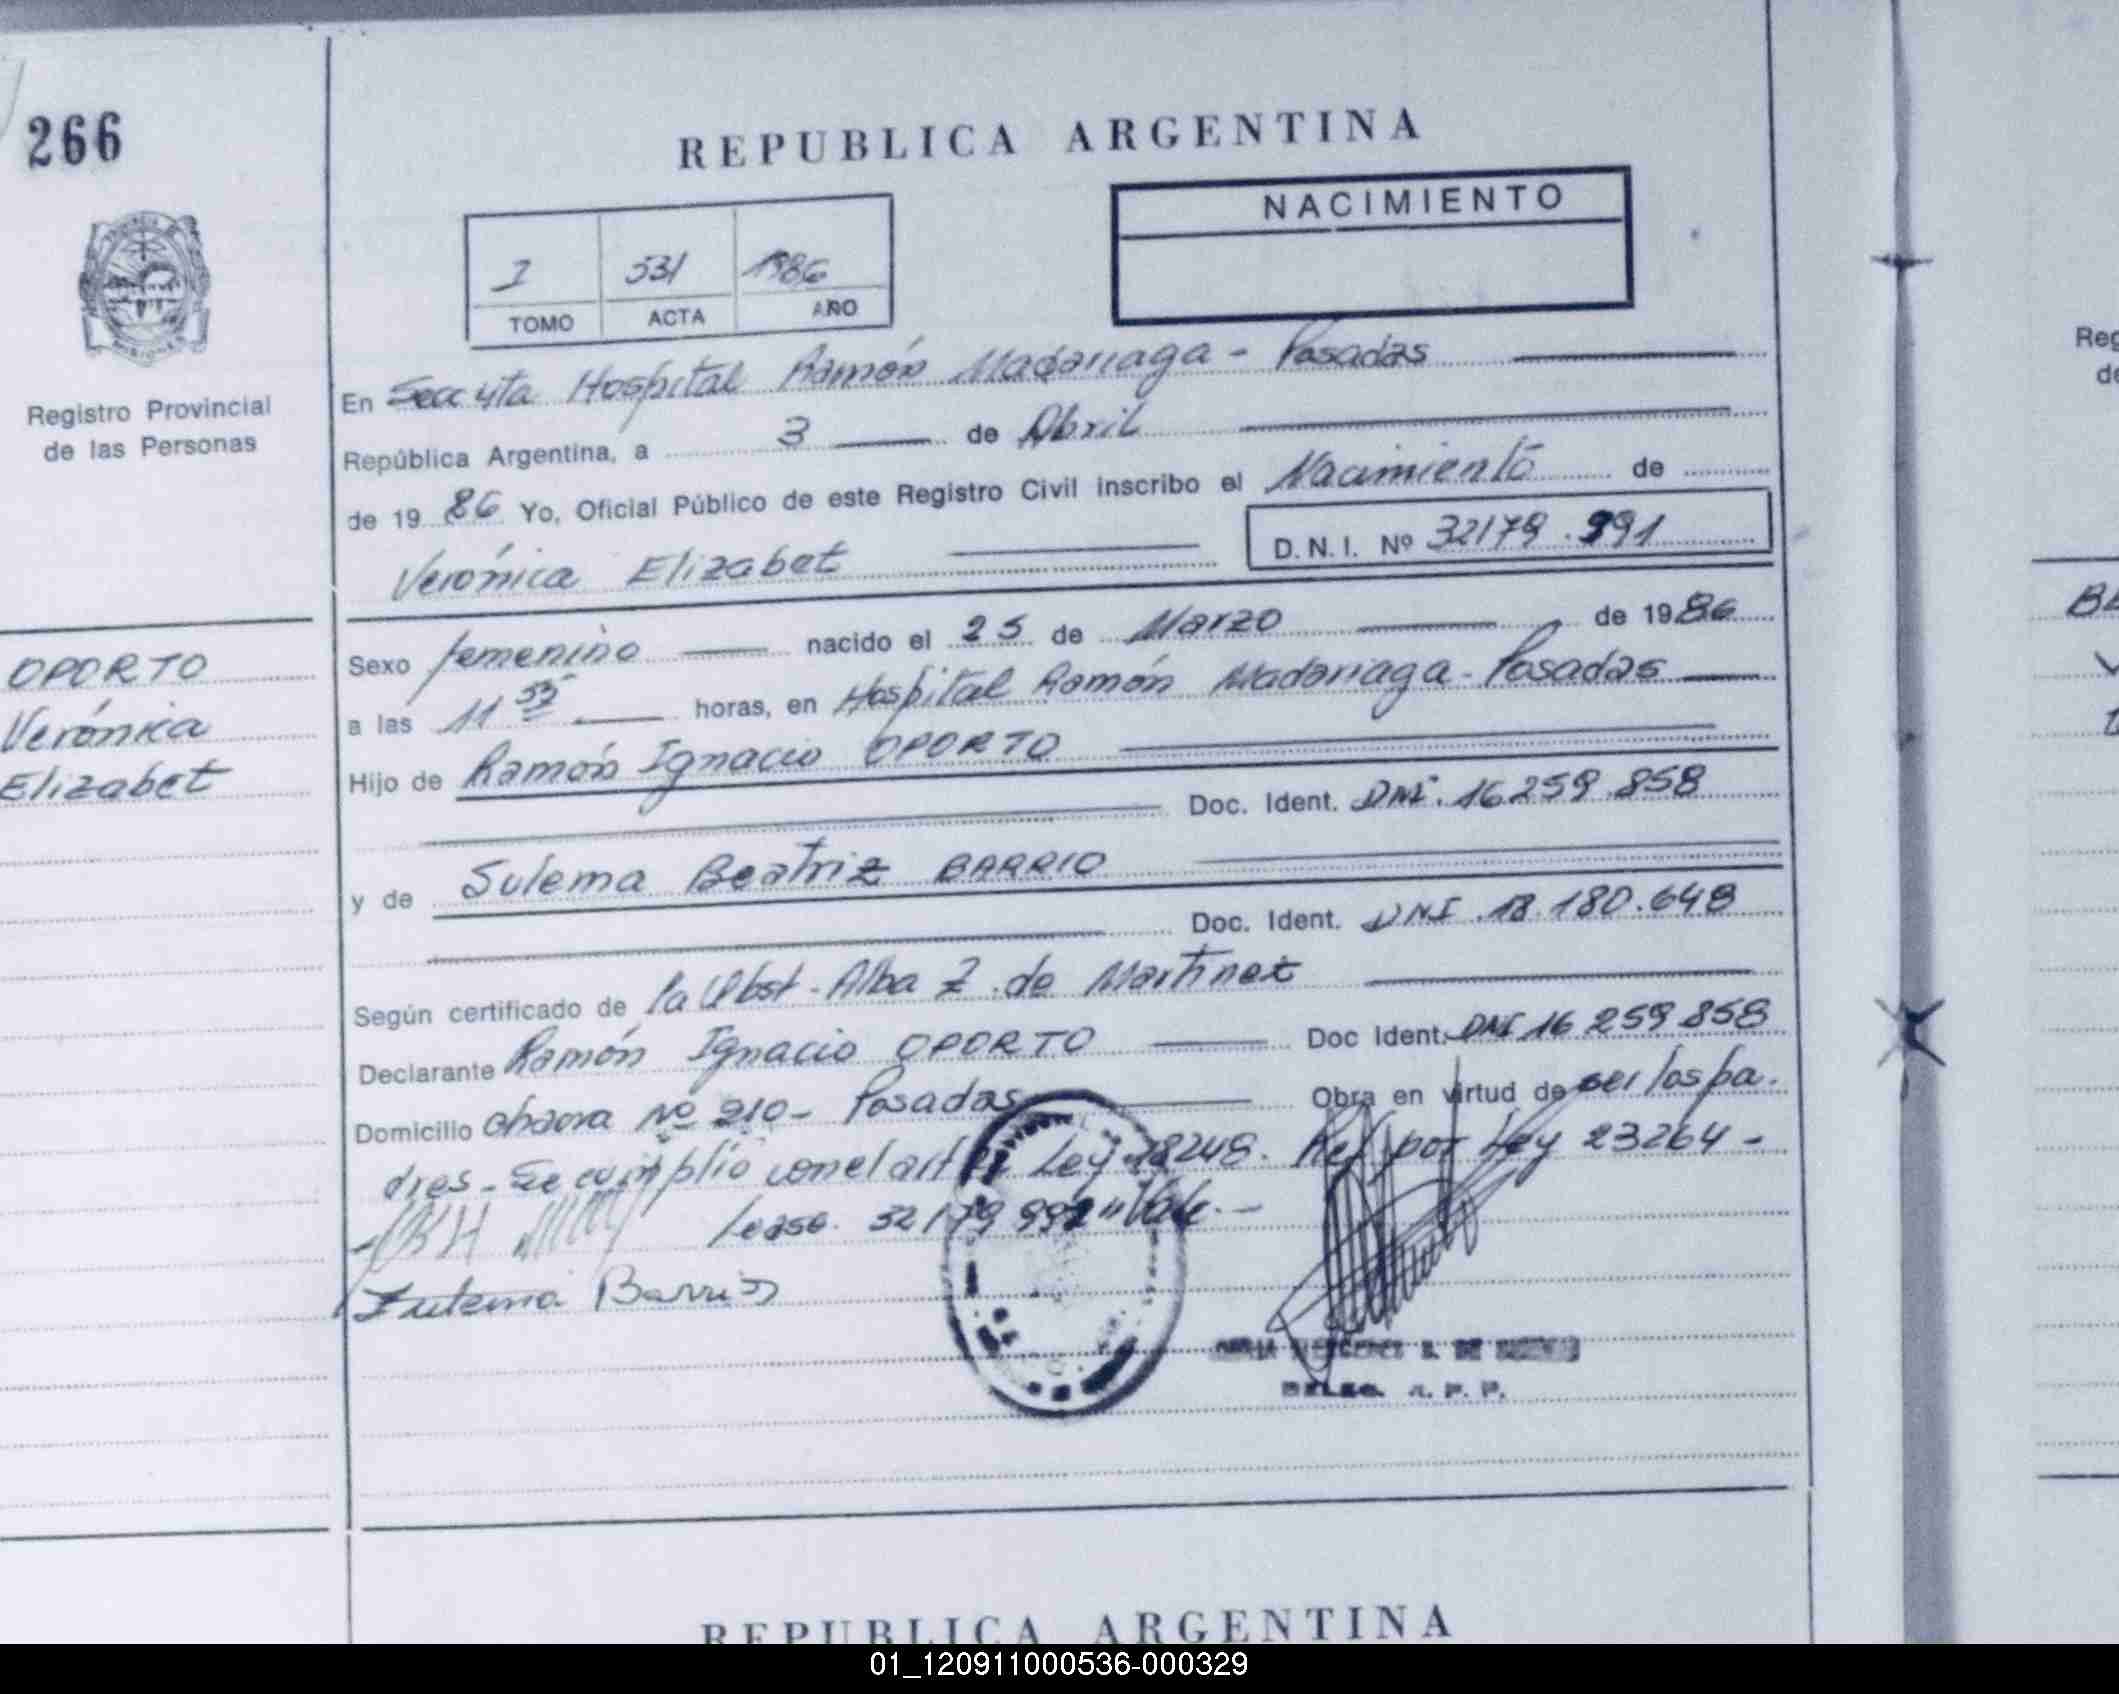 266
REPUBLICA ARGENTINA
NACIMIENTO
I 531 1986
TOMO ACTA AÑO
Registro Provincial
de las Personas
En Secc yta Hospital Ramón Madariaga - Posadas
República Argentina, a 3 de Abril
de 1986 Yo, Oficial Público de este Registro Civil inscribo el Nacimiento de
Verónica Elizabet D.N.I. Nº 32179.991
OPORTO
Verónica
Elizabet
Sexo femenino nacido el 25 de Marzo de 1986
a las 11 55 horas, en Hospital Ramón Madariaga - Posadas
Hijo de Ramón Ignacio OPORTO
Doc. Ident. DNI. 16.259.858
y de Sulema Beatriz BARRIO
Doc. Ident. DNI. 18.180.648
Según certificado de la Obst. Alba Z. de Martinez
Declarante Ramón Ignacio OPORTO Doc Ident. DNI 16 259 858
Domicilio chacra Nº 210 - Posadas Obra en virtud de ser los pa.
dres. Se cumplió con el art Ley 18248. Ref por Ley 23264 -
lease. 32179991 "Vale. -
Zulema Barrios
DELEG. R. P. P.
REPUBLICA ARGENTINA
Reg
de
01_120911000536-000329